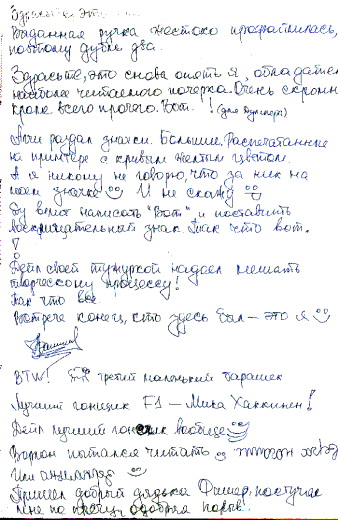 Здрасьте, это
Выданная ручка жестоко профатилась,
поэтому дубль два.
Здрасьте, это снова опять я, обладатель
наиболее читаемого почерка. Очень скромный
кроме всего прочего. Вот. !
Лочи раздал значки. Большие. Распечатанные
на принтере с кривым желтым цветом.
А я никому не говорю, что за ник на
моем значке И не скажу
Бу велел написать "Вот" и поставить
восклицательный знак. Так что вот.
!
Дейл своей тужуркой надоел мешать
творческому процессу!
Так что все.
Встрече конец, кто здесь был — это я
BTW! третий маленький барашек
Лучший гонщик F1 — Мика Хаккинен!
Дейл лучший гонщик вообще
Ворон пытался читать
Или
Пришел добрый дядька Фишер, постучал
мне по плечу, одобрил порыв.